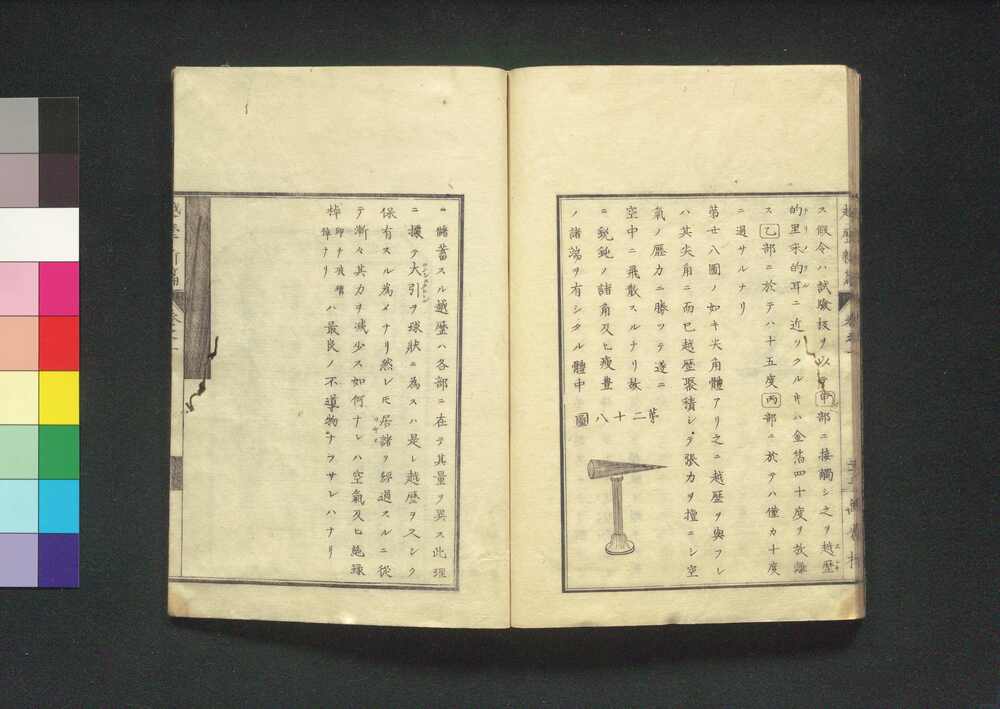 ス假令ハ試驗扱ヲ以テ甲部ニ接觸シ之ヲ越歴
的里米的耳ニ近ツクルキハ金箔四十度ヲ放離
ス乙部ニ於テハ十五度丙部ニ於テハ僅カ十度
ニ過サルナリ
第廿八圖ノ如キ尖角體アリ之ニ越歴ヲ與フレ
ハ其尖角ニ而已越歴聚積シテ張力ヲ擅ニシ空
氣ノ壓力ニ勝ツテ遂ニ
空中ニ飛散スルナリ故
ニ銳鈍ノ諸角及ヒ瘦
ノ諸端ヲ有シタル體中
第二十八圖
ニ儲蓄スル越歴ハ各部ニ在テ其量ヲ異ス此理
ニ據テ大引ヲ球狀ニ為スハ是レ越歴ヲ久シク
保有スル為メナリ然レ𪜈居諸ヲ經過スルニ從
テ漸々其力ヲ減少ス如何ナレハ空氣及ヒ絶縁
棹ハ最良ノ不導物ナラサレハナリ
即チ玻
棹ナリ